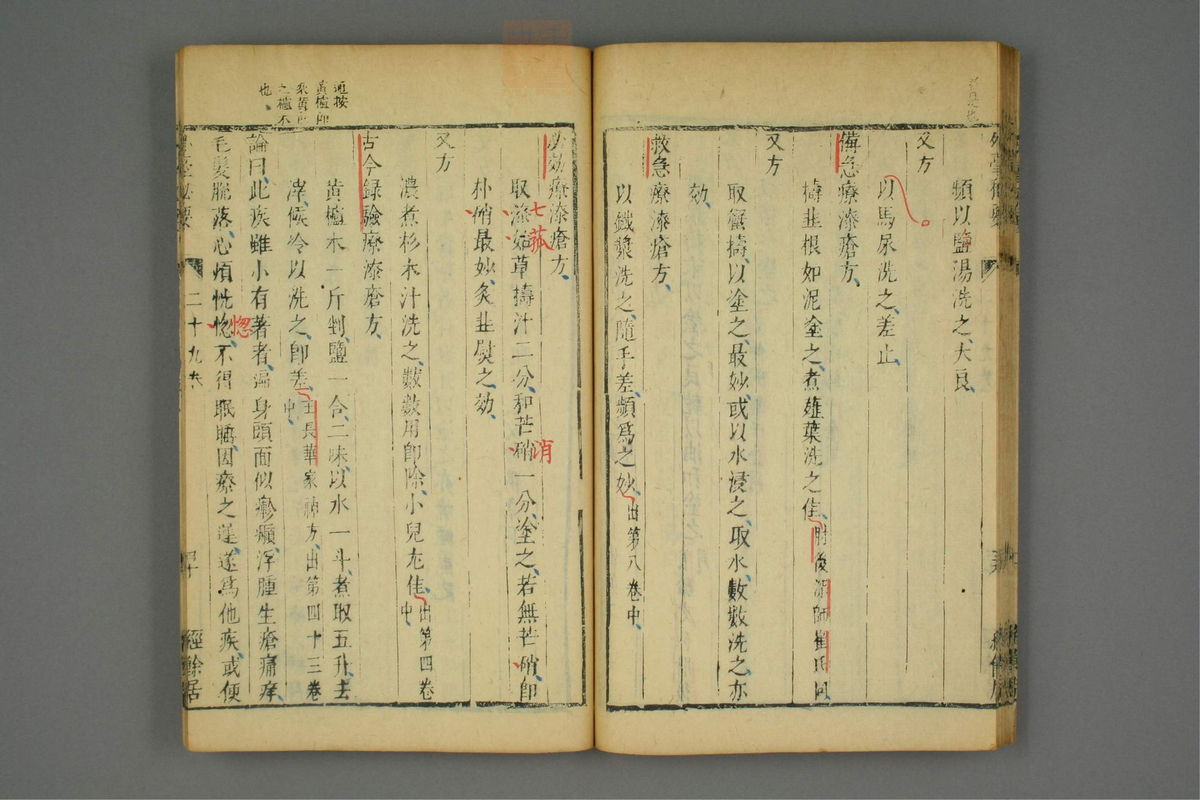 頻以鹽湯洗之大良
又方
以馬尿洗之差止
備急療漆瘡方
擣韭根如泥塗之煮薤葉洗之佳肘後深師崔氏同
又方
取蟹擣以塗之最妙或以水浸之取水數數洗之亦
効
救急療漆瘡方
以鐵漿洗之隨手差頻爲之妙出第八卷中
必効療漆瘡方
取漆姑草擣汁二分和芒硝一分塗之若無芒硝即
七菰
消
朴硝最妙灸韭熨之効
又方
濃煮杉木汁洗之數數用即除小兒尤佳出第四卷
中
古今録驗療漆瘡方
黃櫨木一斤剉鹽一合二味以水一斗煮取五升去
滓候冷以洗之即差王長華家神方出第四十三卷
中
論曰此疾雖小有著者遍身頭面似癮癩浮腫生瘡痛痒
毛髮脫落心煩恍惚不得眠睡因療之遲遂爲他疾或便
惚
二十九卷
四十
經餘居
通按
黃櫨即
之櫨木
也